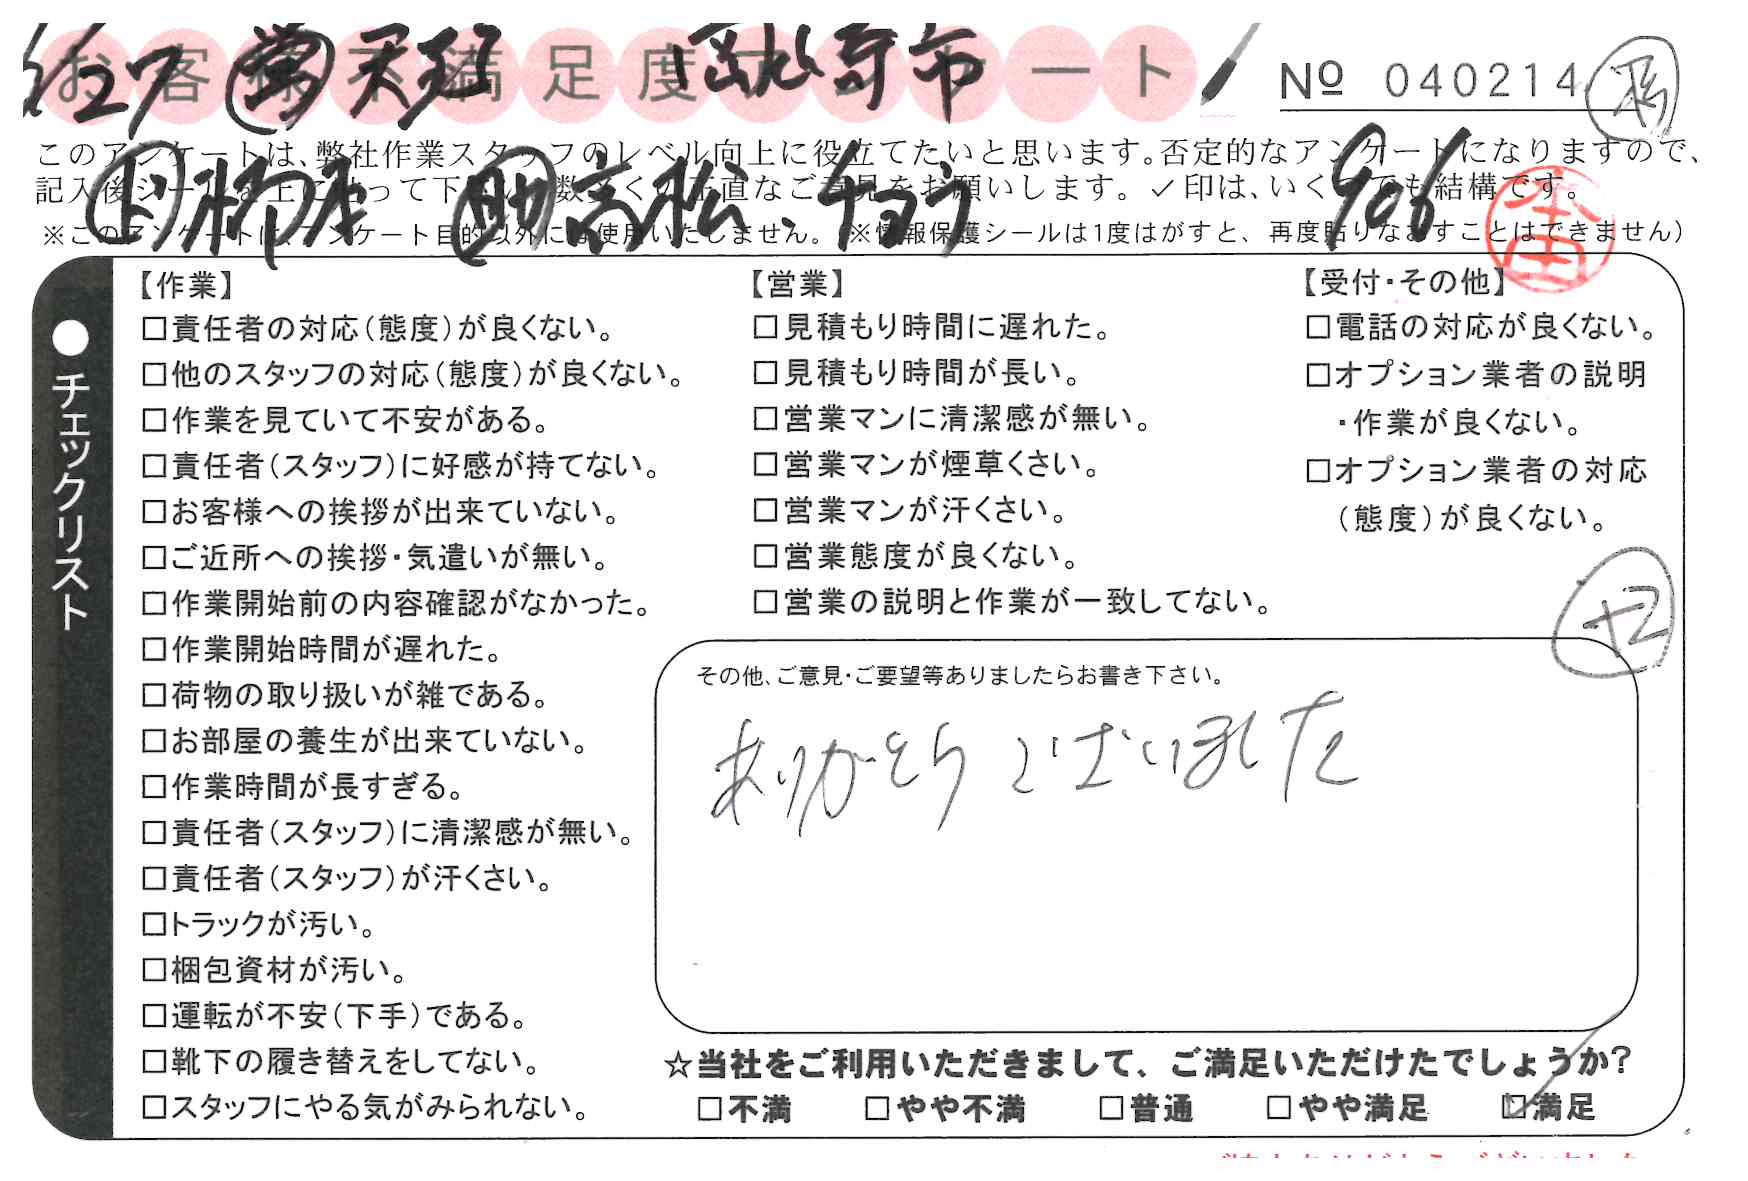 お客様不満足度アンケート
No 040214
このアンケートは、弊社作業スタッフのレベル向上に役立てたいと思います。否定的なアンケートになりますので、
記入後シールを上に貼って下さい。数多くの正直なご意見をお願いします。✓印は、いくつでも結構です。
※このアンケートは、アンケート目的以外には使用いたしません。(※情報保護シールは1度はがすと、再度貼りなおすことはできません)
高松、チョウ
906
●チェックリスト
【作業】
□責任者の対応(態度)が良くない。
□他のスタッフの対応(態度)が良くない。
□作業を見ていて不安がある。
□責任者(スタッフ)に好感が持てない。
□お客様への挨拶が出来ていない。
□ご近所への挨拶・気遣いが無い。
□作業開始前の内容確認がなかった。
□作業開始時間が遅れた。
□荷物の取り扱いが雑である。
□お部屋の養生が出来ていない。
□作業時間が長すぎる。
□責任者(スタッフ)に清潔感が無い。
□責任者(スタッフ)が汗くさい。
□トラックが汚い。
□梱包資材が汚い。
□運転が不安(下手)である。
□靴下の履き替えをしてない。
□スタッフにやる気がみられない。
【営業】
□見積もり時間に遅れた。
□見積もり時間が長い。
□営業マンに清潔感が無い。
□営業マンが煙草くさい。
□営業マンが汗くさい。
□営業態度が良くない。
□営業の説明と作業が一致してない。
【受付・その他】
□電話の対応が良くない。
□オプション業者の説明
・作業が良くない。
□オプション業者の対応
(態度)が良くない。
その他、ご意見・ご要望等ありましたらお書き下さい。
ありがとうございました
☆当社をご利用いただきまして、ご満足いただけたでしょうか?
□不満 □やや不満 □普通 □やや満足 ☑満足